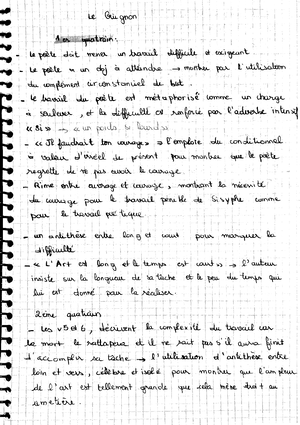 Le Guignon
1er quatrain:
- Le poète doit mener un travail difficile et exigeant
- Le poète a un obj à atteindre → montrer par l'utilisation
du complément circonstanciel de but.
- Le travail du poète est métaphorisé comme un charge
à soulever, et la difficulté est renforcé par l'adverbe intensif
« Si » → « un poids si lourd »
- « Il faudrait ton courage » → l'emploie du conditionnel
à valeur d'irréel du présent pour montrer que le poète
regrette de ne pas avoir le courage.
- Rime entre ouvrage et courage, montrant la nécessité
du courage pour le travail pénible de Sisyphe comme
pour le travail poétique.
- un antithèse entre long et court pour marquer la
difficulté
- « L'Art est long et le temps est court » → l'auteur
insiste sur la longueur de sa tâche et le peu du temps qui
lui est donné pour la réaliser.
2ème quatrain
- Les v5 et 6, décrivent la complexité du travail car
la mort le rattrapera et il ne sait pas s'il aura fini
d'accomplir sa tâche → l'utilisation d'antithèse entre
loin et vers, célèbre et isolé pour montrer que l'ampleur
de l'art est tellement grande que cela mène droit au
cimetière.